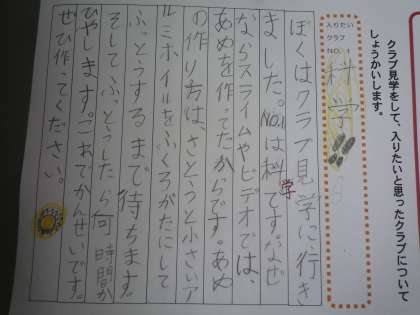 クラブ見学をして、入りたいと思ったクラブについて
しょうかいします。
入りたい
クラブ
NO.1
科学
ぼくはクラブ見学に行き
ました。NO.1は科学です。なぜ
ならスライムやビデオでは、
あめを作ってたからです。あめ
の作り方は、さとうと小さいア
ルミホイルをふくろがたにして
ふっとうするまで待ちます。
そしてふっとうしたら何時間か
ひやします。これでかんせいです。
ぜひ作ってください。